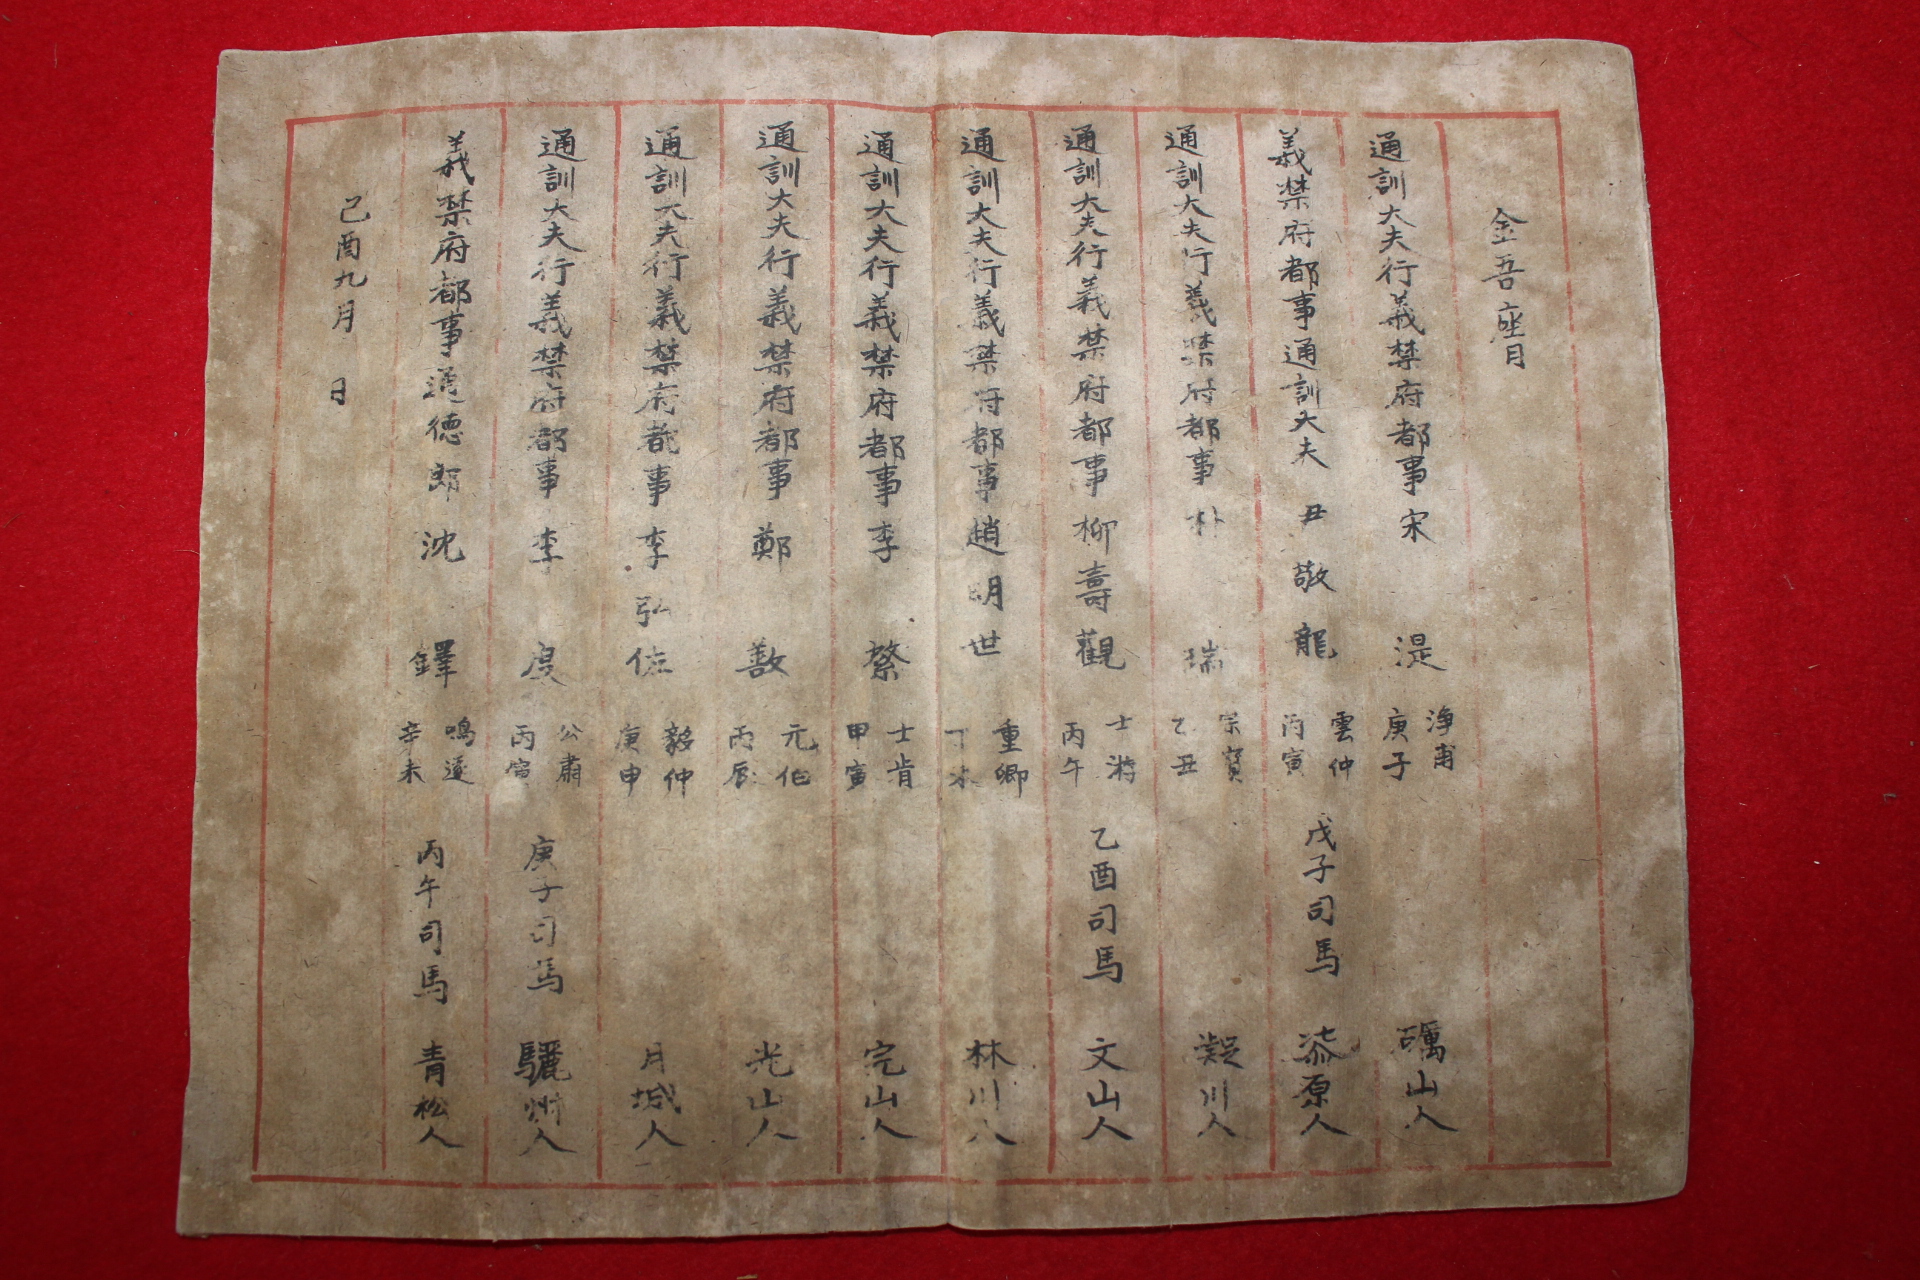 金吾座目
通訓大夫行義禁府都事宋 湜 淨甫 庚子 礪山人
義禁府都事通訓大夫 丑敬龍 雲仲 丙寅 戊子司馬 漆原人
通訓大夫行義禁府都事 朴 瑞 宗寶 乙丑 凝川人
通訓大夫行義禁府都事柳壽觀 士游 丙午 乙酉司馬 文山人
通訓大夫行義禁府都事趙明世 重卿 丁 林川人
通訓大夫行義禁府都事李 繁 士肯 甲寅 完山人
通訓大夫行義禁府都事鄭 敾 元伯 丙辰 光山人
通訓大夫行義禁府都事李弘佐 毅仲 庚申 月城人
通訓大夫行義禁府都事李 度 公肅 丙寅 庚子司馬 驪州人
義禁府都事通德郎沈 鐸 鳴遠 辛未 丙午司馬 青松人
己酉九月 日